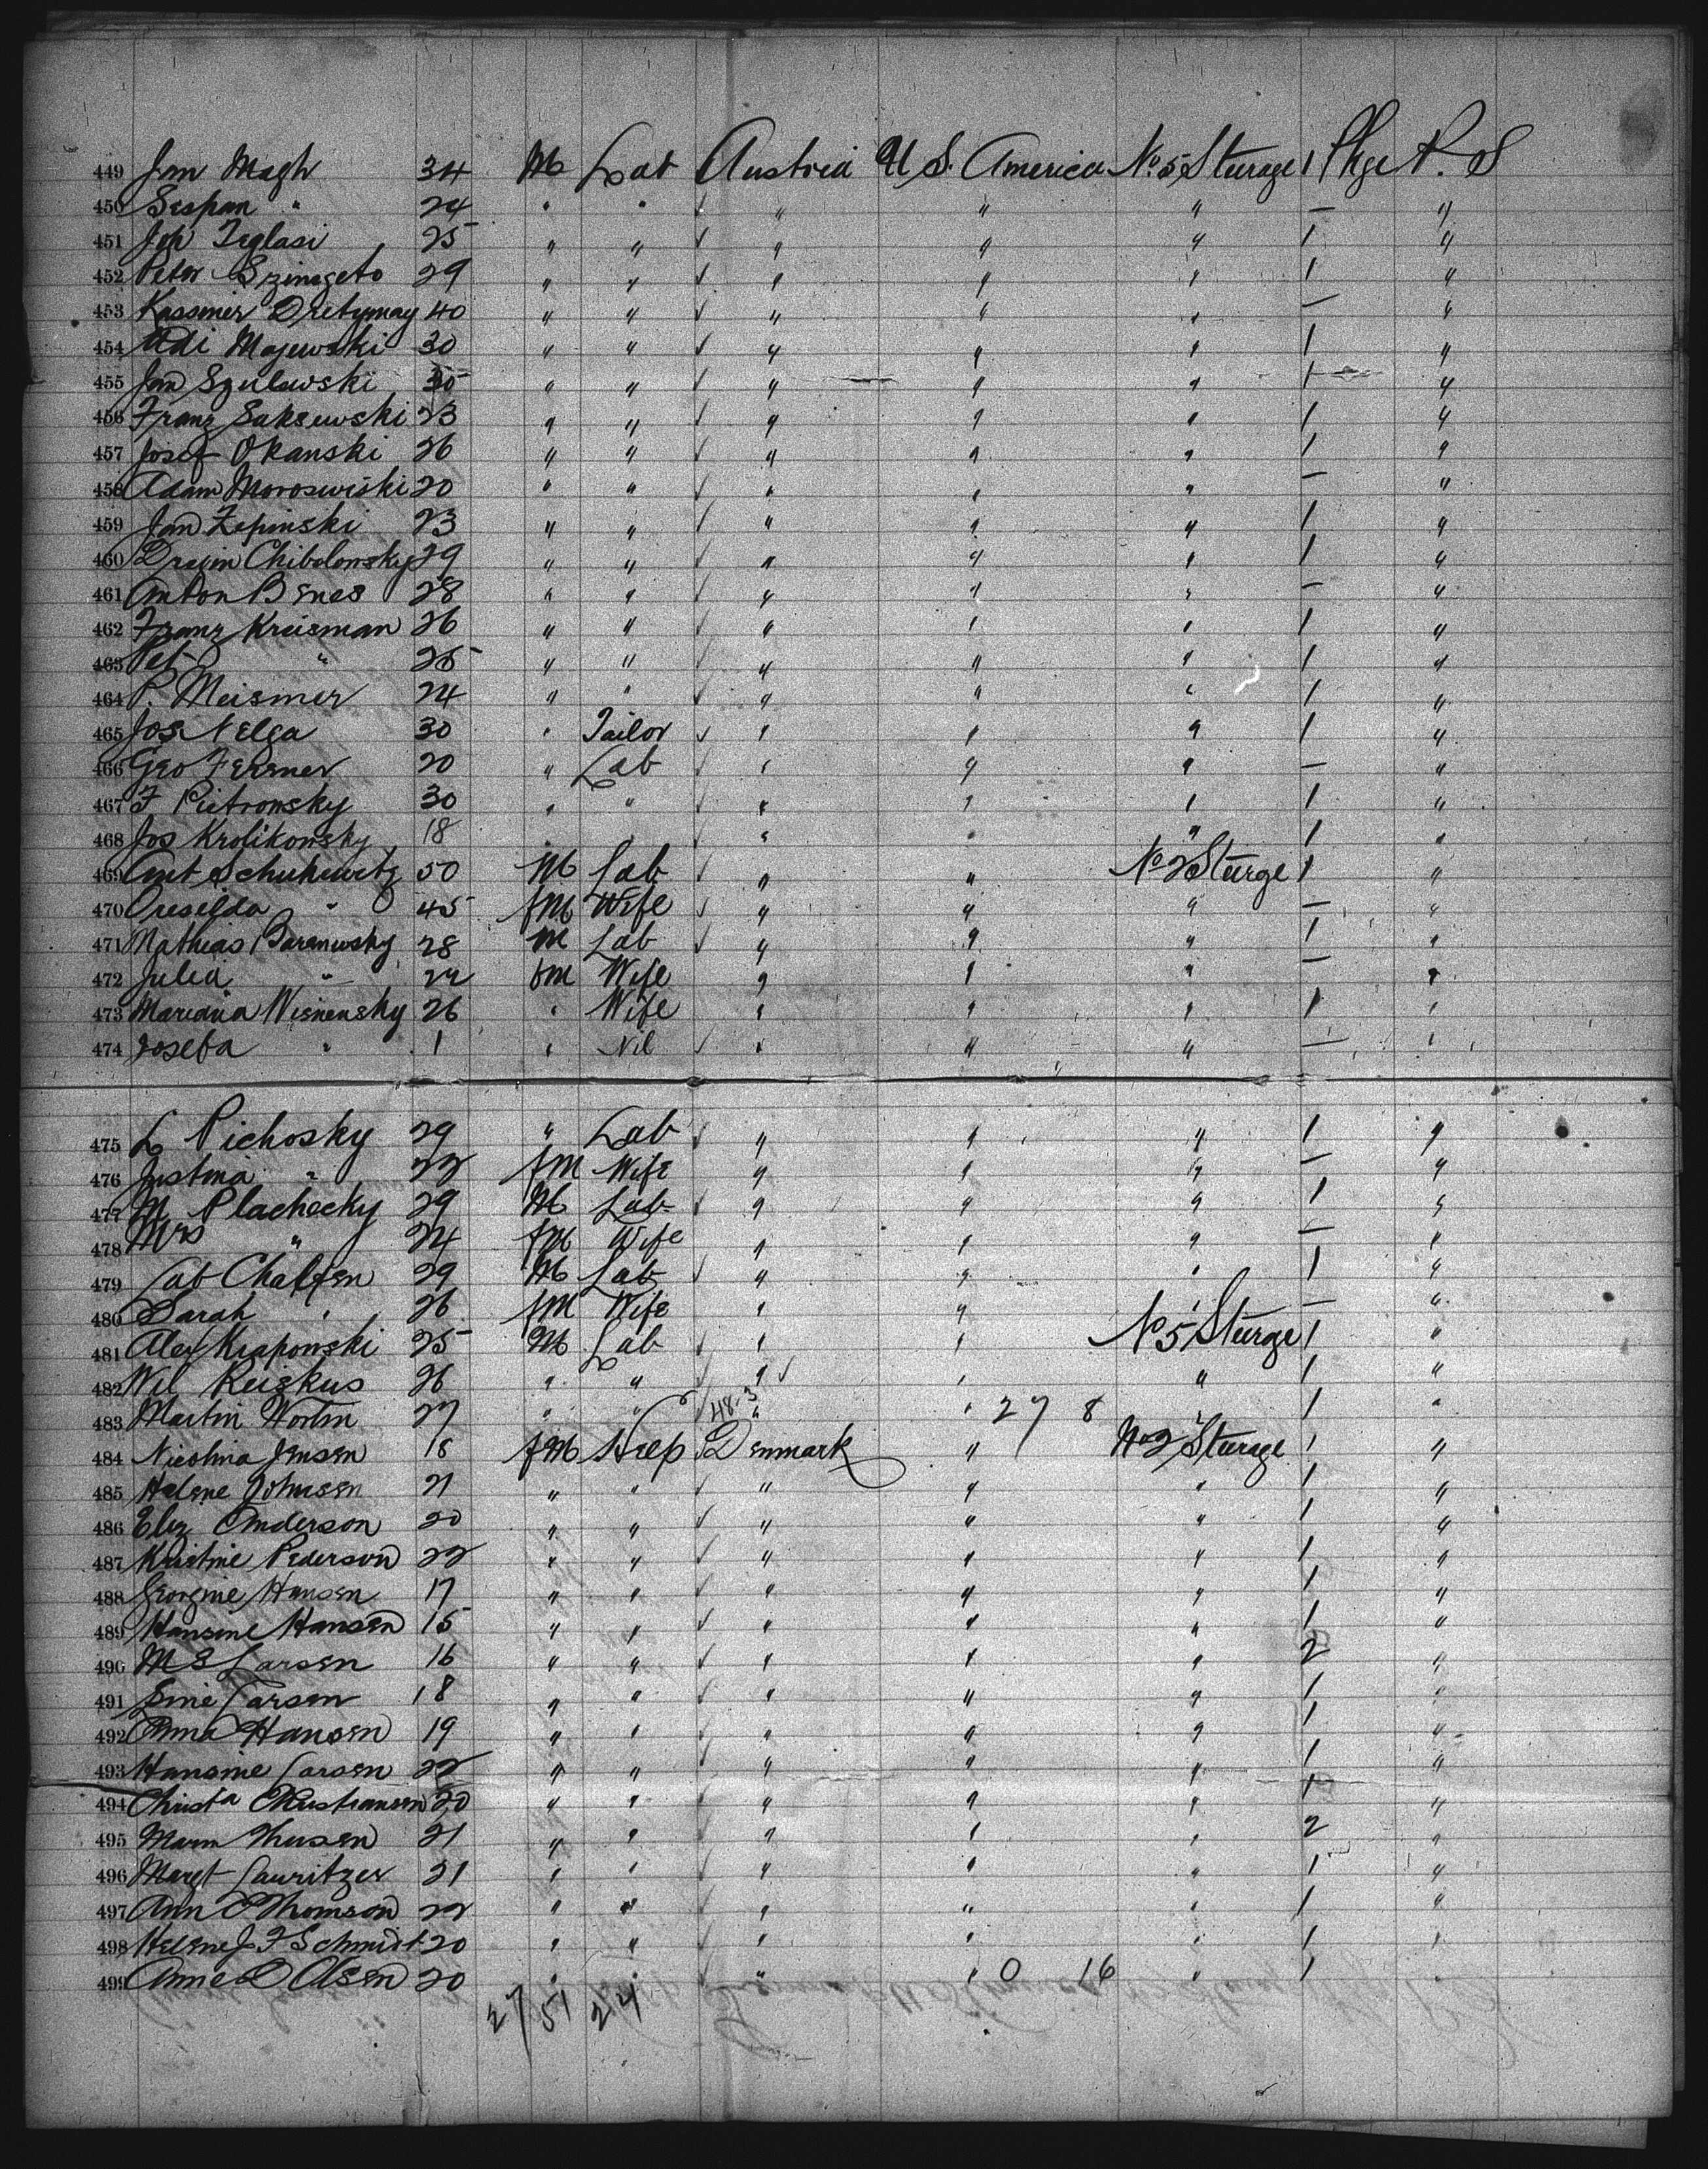 449 Jan Magh 34 M Lab Austria U S. America No 5 Steerage 1 Pkge P. S
450 Sespan " 24 " " " " " — "
451 Jos Teglasi 25 " " " " " 1 "
452 Peter Szinageto 29 " " " " " 1 "
453 Kassmer 40 " " " " " — "
454 Adi Majewski 30 " " " " " 1 "
455 Jan Szulewski " " " " " 1 "
456 Franz Saksewski 23 " " " " " 1 "
457 Josef Okanski 26 " " " " " 1 "
458 Adam Moroswiski 20 " " " " " — "
459 Jan Zepinski 23 " " " " " 1 "
460 Chibolonsky 29 " " " " " 1 "
461 Anton Benes 28 " " " " " — "
462 Franz Kreisman 26 " " " " " 1 "
463 Pet " 25 " " " " " 1 "
464 P. Meismer 24 " " " " " 1 "
465 Jos Nelga 30 " Tailor " " " 1 "
466 Geo Ferener 20 " Lab " " " — "
467 F Pietronsky 30 " " " " " 1 "
468 Jos Krolikonsky 18 " " " " " 1 "
469 Ant Schukewitz 50 M Lab " " No 2 Steerge 1 "
470 Creselda " 45 fM Wife " " " — "
471 Mathias Baranwsky 28 M Lab " " " 1 "
472 Julia " 22 fM Wife " " " — "
473 Mariana Wisnensky 26 " Wife " " " 1 "
474 Josefa " 1 " Nil " " " — "
475 L Pichosky 29 " Lab " " " 1 "
476 Justina " 22 fM Wife " " " — "
477 M Plachecky 29 M Lab " " " 1 "
478 Mrs " 24 fM Wife " " " — "
479 Chaffen 29 M Lab " " " 1 "
480 Sarah " 26 fM Wife " " " — "
481 Alex Kraponski 25 M Lab " " No 5 Steerge 1 "
482 Wil Reiskus 26 " " " " " 1 "
483 Martin Wortm 27 " " 48-3 " " 27 8 " 1 "
484 Nicolina Jensen 18 fM Denmark " No 2 Steerage 1 "
485 Helene Johnsen 21 " " " " " 1 "
486 Eliz Anderson 20 " " " " " 1 "
487 Kristine Pederson 22 " " " " " 1 "
488 Georgine Hansen 17 " " " " " 1 "
489 Hansine Hansen 15 " " " " " 1 "
490 M E Larsen 16 " " " " " 2 "
491 Sine Larsen 18 " " " " " 1 "
492 Anna Hansen 19 " " " " " 1 "
493 Hansine Larsen 22 " " " " " 1 "
494 Christa Christiansen 20 " " " " " 1 "
495 Maren 21 " " " " " 2 "
496 Margt Lauritzen 21 " " " " " 1 "
497 Ann E Thomson 22 " " " " " 1 "
498 Helene J F Schmidt 20 " " " " " 1 "
499 Anne Olsen 20 " " " " 0 16 " 1 "
27 51 24